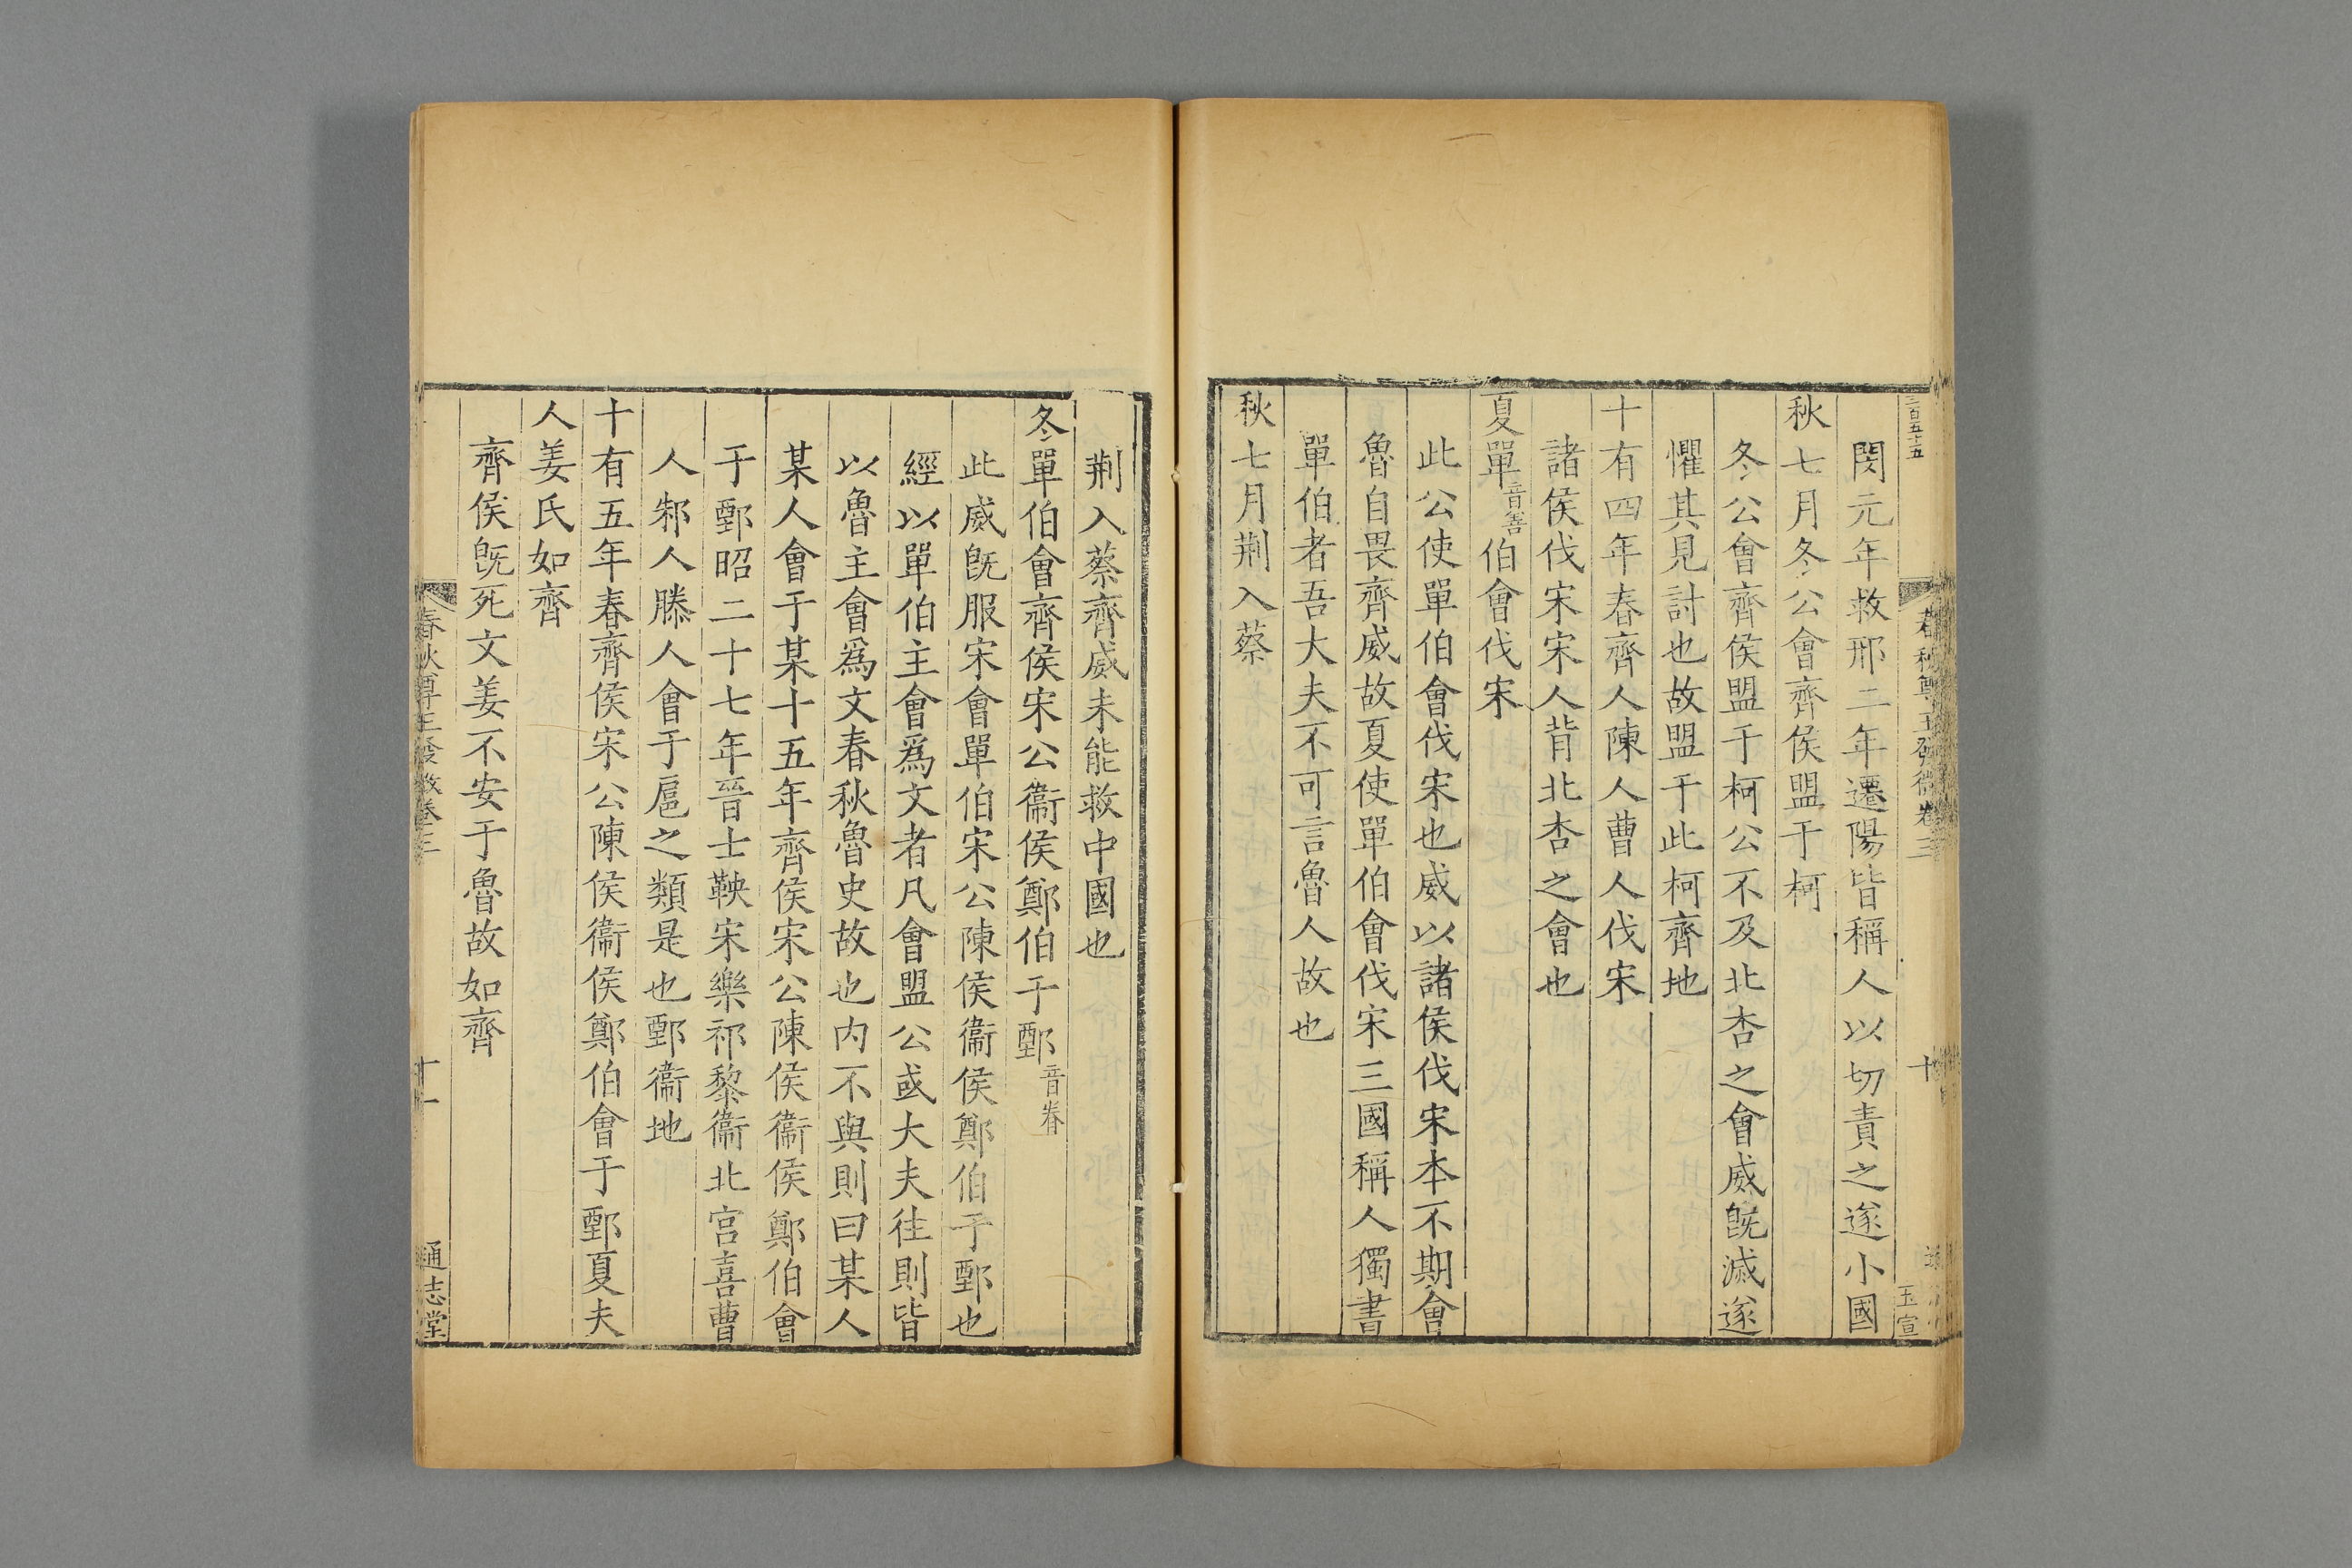 三百五十五
春秋尊王發微卷三
十
玉宣
閔元年救邢二年遷陽皆稱人以切責之遂小國
秋七月冬公會齊侯盟于柯
冬公會齊侯盟于柯公不及北杏之會威旣滅遂
懼其見討也故盟于此柯齊地
十有四年春齊人陳人曹人伐宋
諸侯伐宋宋人背北杏之會也
夏單音善伯會伐宋
此公使單伯會伐宋也威以諸侯伐宋本不期會
魯自畏齊威故夏使單伯會伐宋三國稱人獨書
單伯者吾大夫不可言魯人故也
秋七月荆入蔡
荆入蔡齊威未能救中國也
冬單伯會齊侯宋公衞侯鄭伯于鄄音眷
此威旣服宋會單伯宋公陳侯衞侯鄭伯于鄄也
經以單伯主會爲文者凡會盟公或大夫往則皆
以魯主會爲文春秋魯史故也内不與則曰某人
某人會于某十五年齊侯宋公陳侯衞侯鄭伯會
于鄄昭二十七年晉士鞅宋樂祁黎衞北宮喜曹
人邾人滕人會于扈之類是也鄄衞地
十有五年春齊侯宋公陳侯衞侯鄭伯會于鄄夏夫
人姜氏如齊
齊侯旣死文姜不安于魯故如齊
春秋尊王發微卷三
十一
通志堂